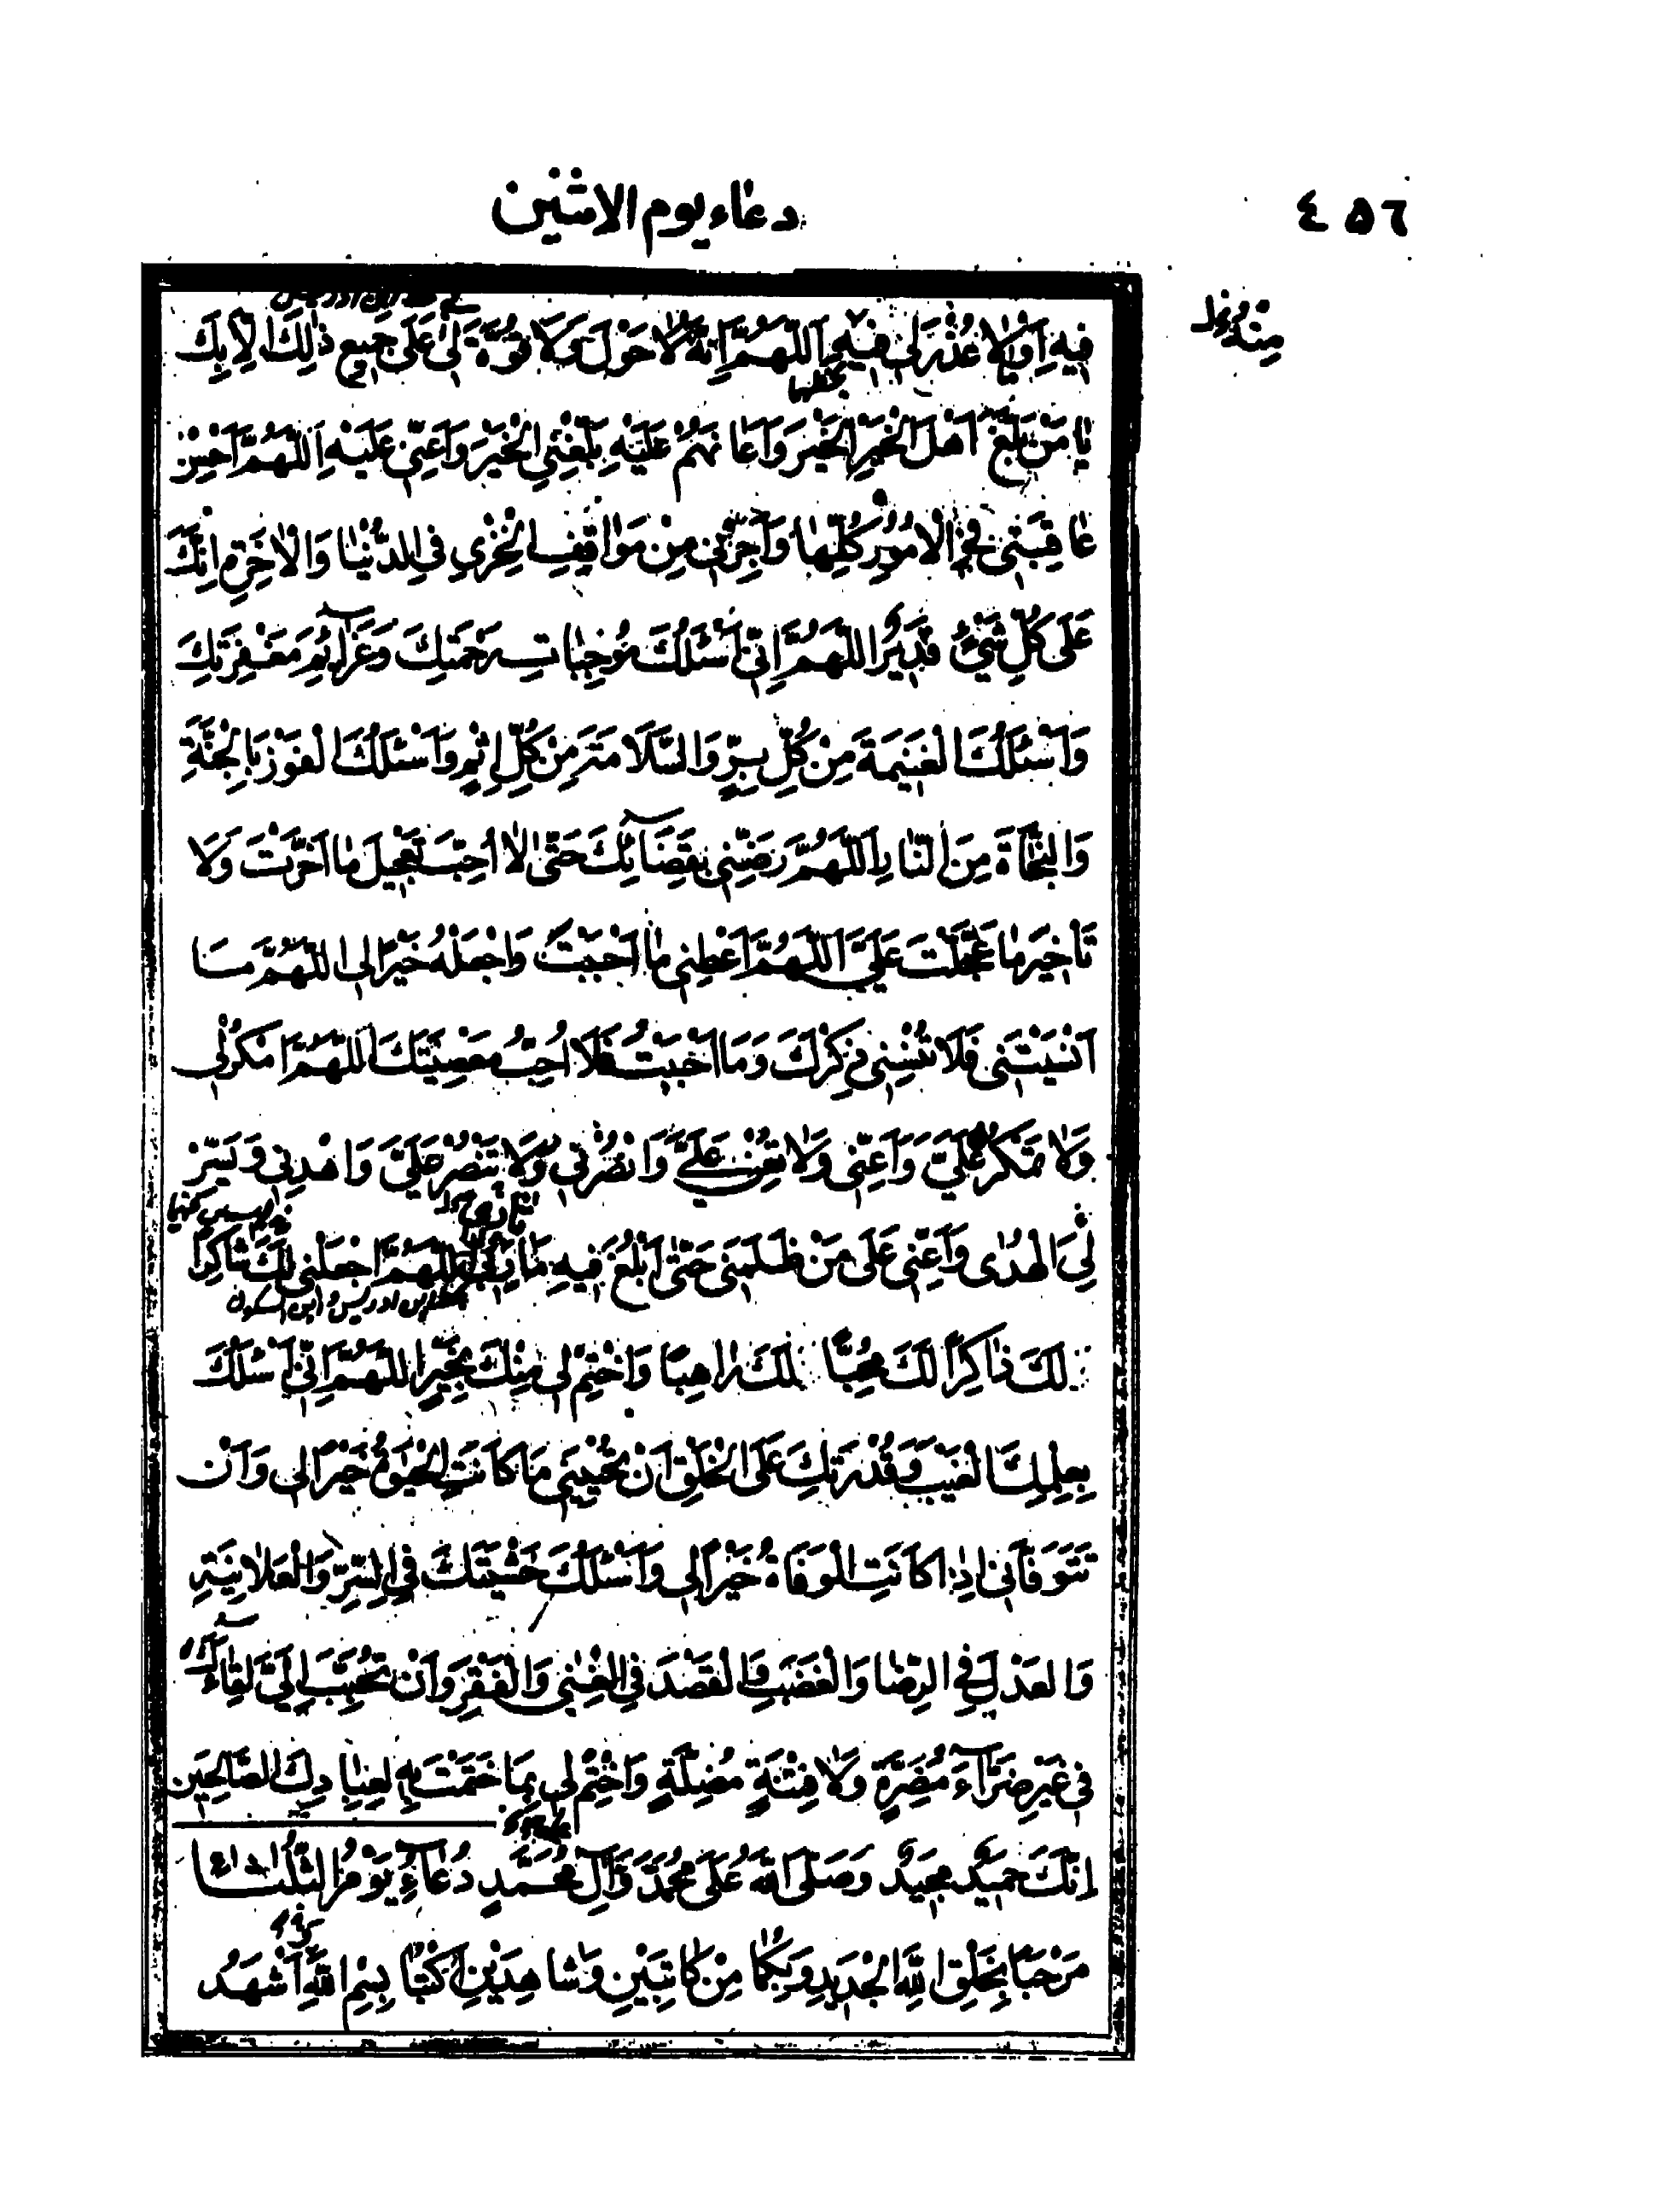 دعاء يوم الاثنين
٤٥٦
فِيهِ اَوْ لاٰ عُذْرَ لِى فِيهِ اَللّٰهُمَّ اِنَّهُ لاٰ حَوْلَ وَلاٰ قُوَّةَ لِى عَلَى جَمِيعِ ذٰلِكَ اِلاّٰ بِكَ
يٰا مَنْ بَلَّغَ اَهْلَ الْخَيْرِ الْخَيْرَ وَاَعٰانَهُمْ عَلَيْهِ بَلِّغْنِى الْخَيْرَ وَاَعِنّى عَلَيْهِ اَللّٰهُمَّ اَحْسِنْ
عٰاقِبَتِى فِى الْاُمُورِ كُلِّهٰا وَاَجِرْنِى مِنْ مَوٰاقِفِ الْخِزْىِ فِى الدُّنْيٰا وَالْاٰخِرَةِ اِنَّكَ
عَلَى كُلِّ شَيْءٍ قَدِيرٌ اَللّٰهُمَّ اِنّى اَسْئَلُكَ مُوجِبٰاتِ رَحْمَتِكَ وَعَزٰآئِمَ مَغْفِرَتِكَ
وَاَسْئَلُكَ الْغَنِيمَةَ مِنْ كُلِّ بِرٍّ وَالسَّلاٰمَةَ مِنْ كُلِّ اِثْمٍ وَاَسْئَلُكَ الْفَوْزَ بِالْجَنَّةِ
وَالنَّجٰاةَ مِنَ النّٰارِ اَللّٰهُمَّ رَضِّنِى بِقَضٰآئِكَ حَتّٰى لاٰ اُحِبَّ تَعْجِيلَ مٰا اَخَّرْتَ وَلاٰ
تَأْخِيرَ مٰا عَجَّلْتَ عَلَىَّ اَللّٰهُمَّ اَعْطِنِى مٰا اَحْبَبْتُ وَاجْعَلْهُ خَيْراً لِى اَللّٰهُمَّ مٰا
اَنْسَيْتَنِى فَلاٰ تُنْسِنِى ذِكْرَكَ وَمٰا اَحْبَبْتُ فَلاٰ اُحِبُّ مَعْصِيَتَكَ اَللّٰهُمَّ امْكُرْ لِى
وَلاٰ تَمْكُرْ عَلَىَّ وَاَعِنّى وَلاٰ تُعِنْ عَلَىَّ وَانْصُرْنِى وَلاٰ تَنْصُرْ عَلَىَّ وَاهْدِنِى وَيَسِّرْ
لِىَ الْهُدٰى وَاَعِنّى عَلَى مَنْ ظَلَمَنِى حَتّٰى اَبْلُغَ فِيهِ اَللّٰهُمَّ اجْعَلْنِى لَكَ شٰاكِراً
لَكَ ذٰاكِراً لَكَ مُحِبّاً لَكَ رٰاهِباً وَاخْتِمْ لِى مِنْكَ بِخَيْرٍ اَللّٰهُمَّ اِنّى اَسْئَلُكَ
بِعِلْمِكَ الْغَيْبَ وَقُدْرَتِكَ عَلَى الْخَلْقِ اَنْ تُحْيِيَنِى مٰا كٰانَتِ الْحَيٰوةُ خَيْراً لِى وَاَنْ
تَتَوَفّٰانِى اِذٰا كٰانَتِ الْوَفٰاةُ خَيْراً لِى وَاَسْئَلُكَ خَشْيَتَكَ فِى السِّرِّ وَالْعَلاٰنِيَةِ
وَالْعَدْلَ فِى الرِّضٰا وَالْغَضَبِ وَالْقَصْدَ فِى الْغِنٰى وَالْفَقْرِ وَاَنْ تُحَبِّبَ اِلَىَّ لِقٰآءَكَ
فِى غَيْرِ ضَرّٰآءَ مُضِرَّةٍ وَلاٰ فِتْنَةٍ مُضِلَّةٍ وَاخْتِمْ لِى بِمٰا خَتَمْتَ بِهِ لِعِبٰادِكَ الصّٰالِحِينَ
اِنَّكَ حَمِيدٌ مَجِيدٌ وَصَلَّى اللهُ عَلَى مُحَمَّدٍ وَآلِ مُحَمَّدٍ دُعٰآءُ يَوْمِ الثَّلٰثٰا
مَرْحَباً بِخَلْقِ اللهِ الْجَدِيدِ وَبِكُمٰا مِنْ كٰاتِبَيْنِ وَشٰاهِدَيْنِ اُكْتُبٰا بِسْمِ اللهِ اَشْهَدُ